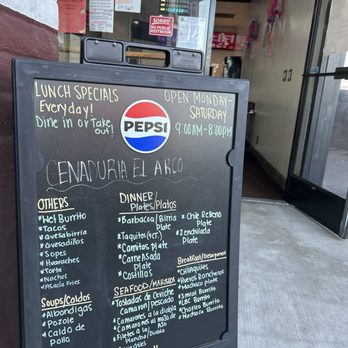 SORRY
NO PUBLIC
RESTROOM
LUNCH SPECIALS
Everyday!
Dine in or Take
out!
PEPSI
OPEN MONDAY-
SATURDAY
9:00AM-8:00PM
CENADURIA EL ARCO
OTHERS
*Wet Burrito
*Tacos
*Quesabirria
*Quesadillas
*Sopes
*Huaraches
*Torta
*Nachos
*Asada Fries
Soups/Caldos
*Albondigas
*Pozole
*Caldo de
Pollo
DINNER/
Plates/Platos
*Barbacoa/Birria
Plate
*Taquitos(4cr.)
*Carnitas plate
*Carne Asada
Plate
*Costillas
*Chile Relleno
Plate
*2 enchilada
Plate
SEAFOOD/MARISCOS
*Tostadas de Ceviche
Camaron/Pescado
*Camarones a la diabla
*Camarones al mojo de
*Filetes a la Ajo
Plancha/Diabla
Breakfast/Desayunos
*Chilaquiles
*Huevos Rancheros
*Machaca plate
*Burrito
*Chorizo Burrito
*Machaca Burrito